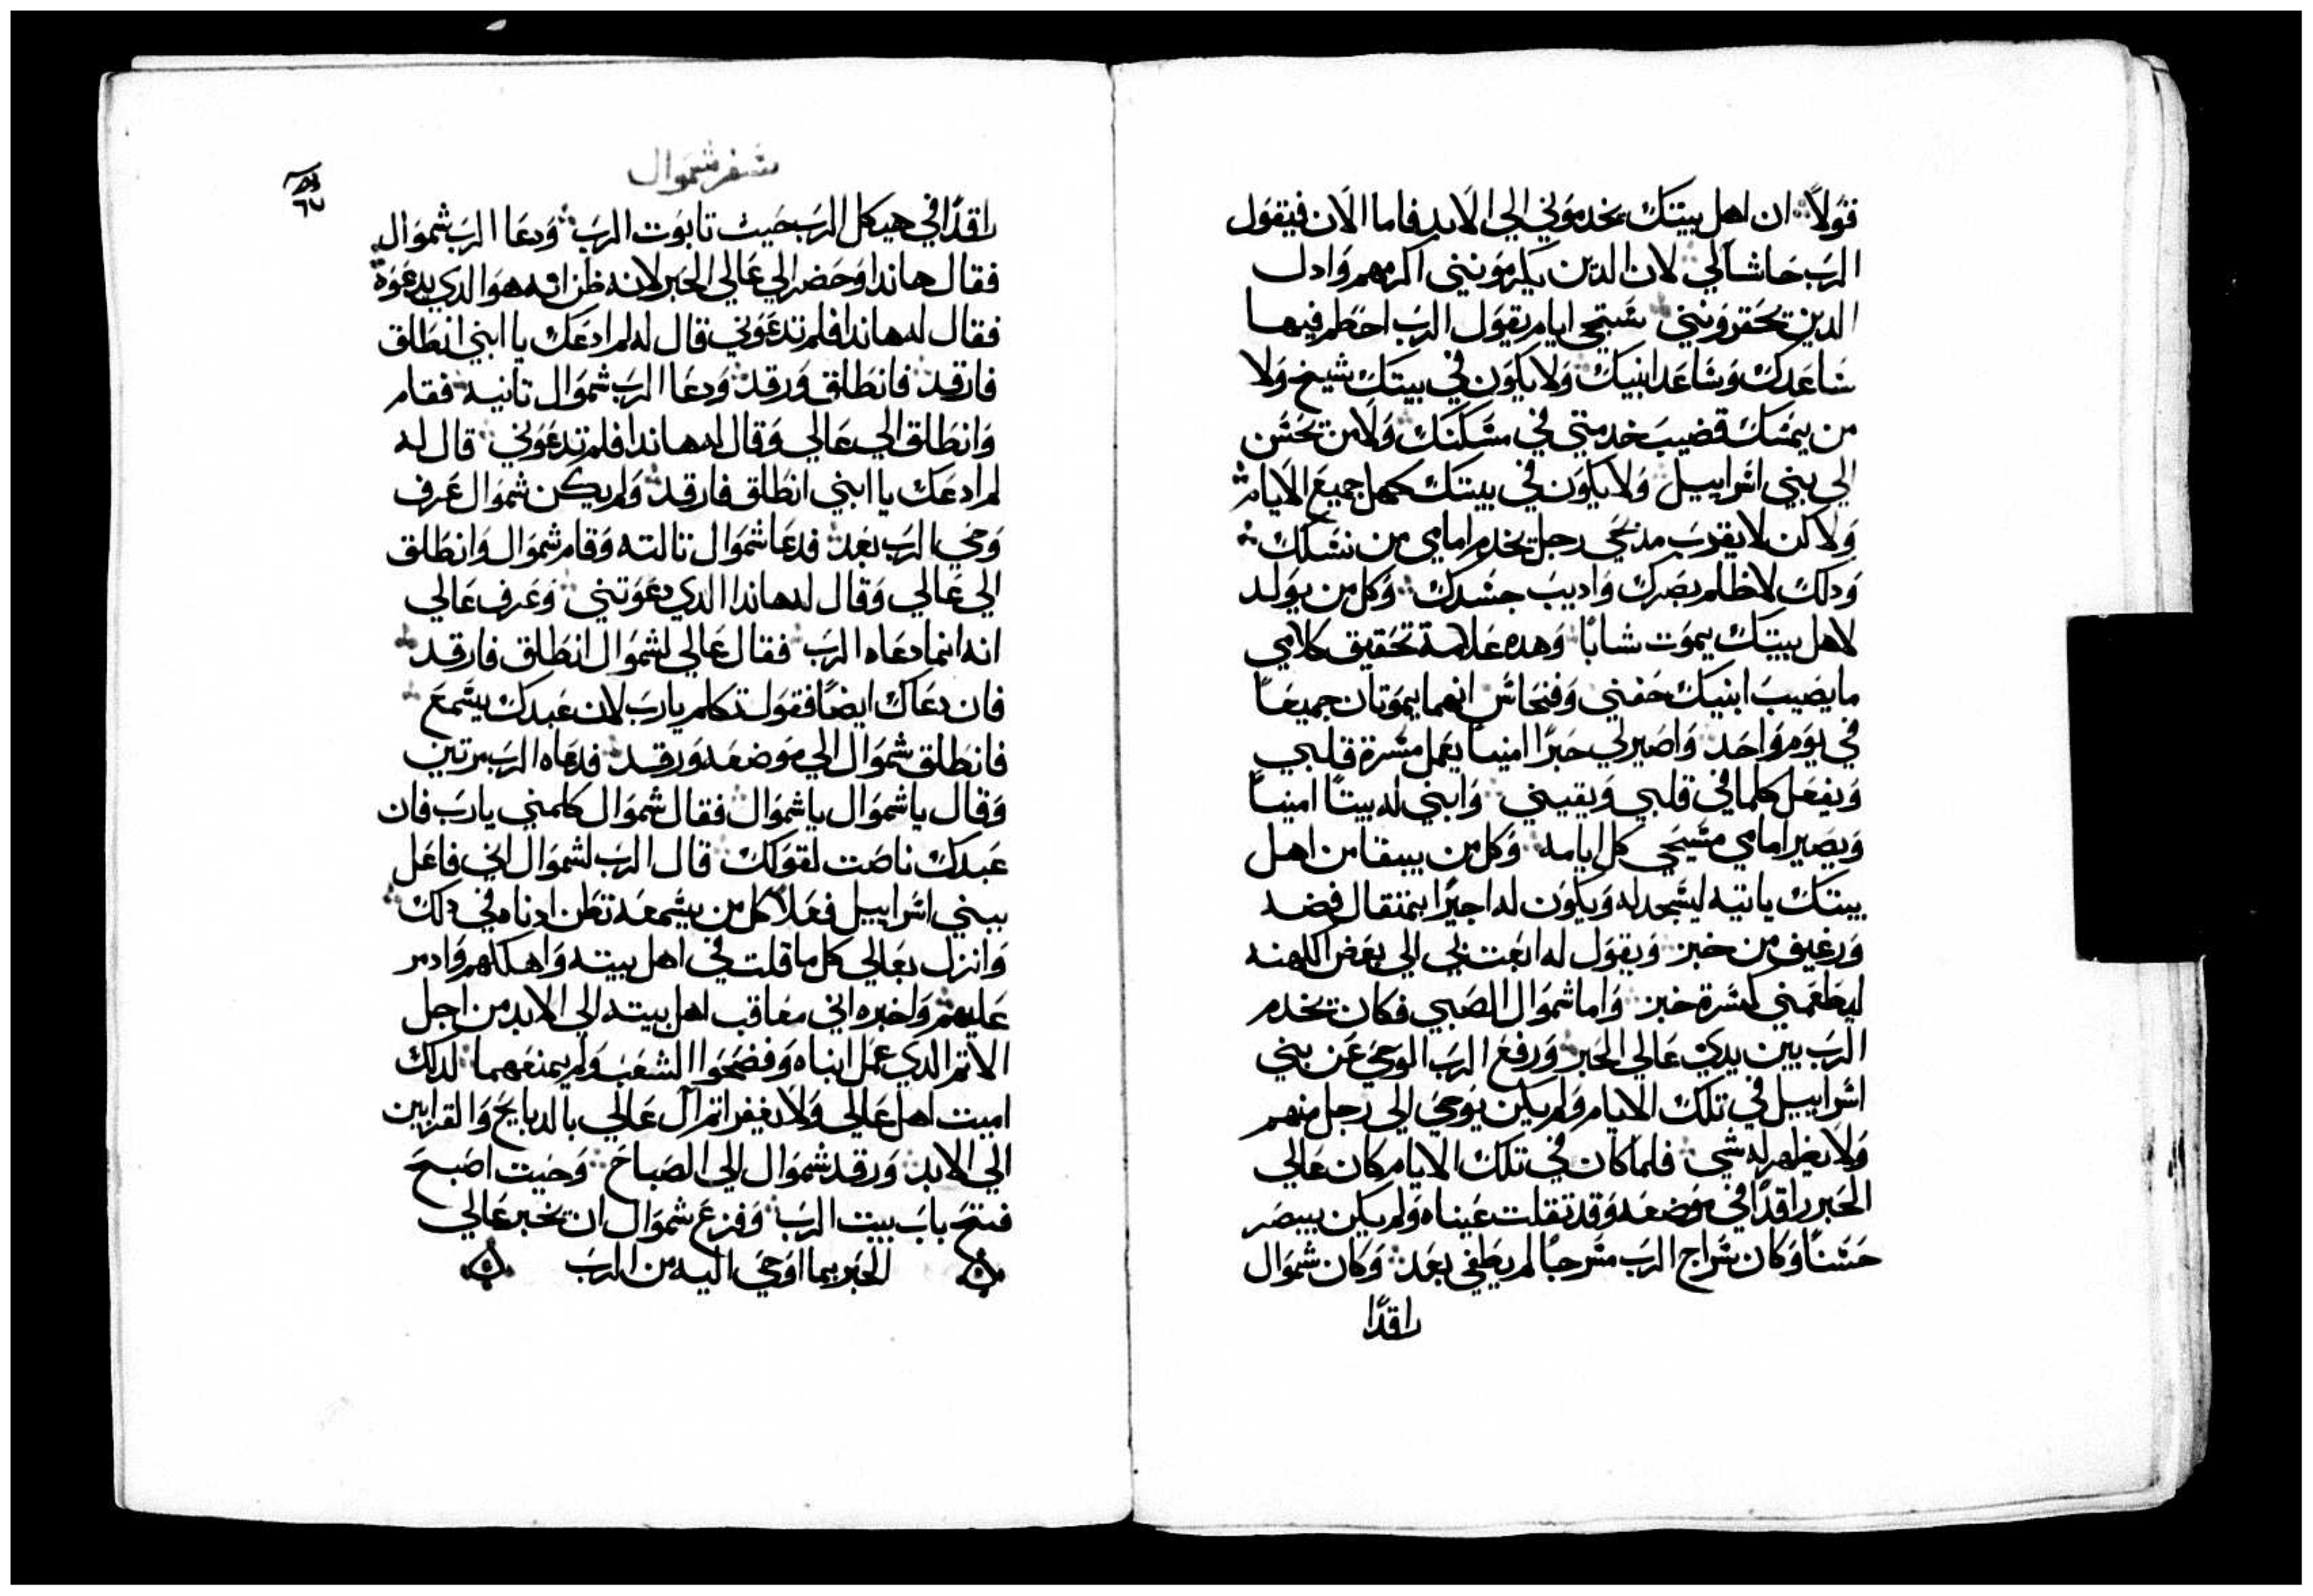 قولاً ان اهل بيتك يخدموني الي الابد فاما الان فيقول
الرب حاشا لي لان الدين يكرمونني اكرمهم وادل
الدين يحقرونني ستجي ايام يقول الرب احطم فيها
ساعدك وساعد ابنيك ولا يكون في بيتك شيخ ولا
من يمسك قضيب خدمتي في مسكنك ولا من يحسن
الي بني اسراييل ولا يكون في بيتك كهل جميع الايام
ولاكن لا يقرب مدبحي رجل يخدم امامي من نسلك
ودلك لاظلم بصرك واديب جسدك وكل من يولد
لاهل بيتك يموت شابا وهده علامة تحقيق كلامي
ما يصيب ابنيك حفني وفنحاس انهما يموتان جميعاً
في يوم واحد واصير لي حبرًا امينا يعمل مسرة قلبي
ويفعل كلما في قلبي ويقيني وابني له بيتًا امينًا
ويصير امامي مسيحي كل ايامه وكل من يبقا من اهل
بيتك ياتيه ليسجد له ويكون له اجيرًا بمتقال فضه
ورغيف من خبز ويقول له ابعت بي الي بعض الكهنه
ليطعمني كسرة خبز واما شموال الصبي فكان يخدم
الرب بين يدي عالي الحبر ورفع الرب الوحي عن بني
اسراييل في تلك الايام ولم يكن يوحي الي رجل منهم
ولا يظهر له شي فلما كان في تلك الايام كان عالي
الحبر راقدًا في موضعه وقد تقلت عيناه ولم يكن يبصر
حسنًا وكان سراج الرب مسرجًا لم يطفي بعد وكان شموال
راقدًا
سفر شموال
٦٧
راقدًا في هيكل الرب حيت تابوت الرب ودعا الرب شموال
فقال هاندا وحضر الي عالي الحبر لانه ظن انه هو الدي يدعوه
فقال له هاندا فلم تدعوني قال له لم ادعك يا ابني انطلق
فارقد فانطلق ورقد ودعا الرب شموال تانيه فقام
وانطلق الي عالي وقال له هاندا فلم تدعوني قال له
لم ادعك يا ابني انطلق فارقد ولم يكن شموال عرف
وحي الرب بعد فدعا شموال تالته وقام شموال وانطلق
الي عالي وقال له هاندا الدي دعوتني وعرف عالي
انه انما دعاه الرب فقال عالي لشموال انطلق فارقد
فان دعاك ايضًا فقول تكلم يارب لان عبدك يسمع
فانطلق شموال الي موضعه ورقد فدعاه الرب مرتين
وقال يا شموال يا شموال فقال شموال كلمني يارب فان
عبدك ناصت لقولك قال الرب لشموال اني فاعل
ببني اسراييل فعلاً كل من يسمعه تطن ادناه في دلك
وانزل بعالي كل ما قلت في اهل بيته واهلكهم وادمر
عليهم واخبره اني معاقب اهل بيته الي الابد من اجل
الاتم الدي عمل ابناه وفضحوا الشعب ولم يمنعهما لدلك
اميت اهل عالي ولا يغفر اتم ال عالي بالدبايح والقرابين
الي الابد ورقد شموال الي الصباح وحيت اصبح
فتح باب بيت الرب وفزع شموال ان يخبر عالي
الحبر بما اوحي اليه من الرب